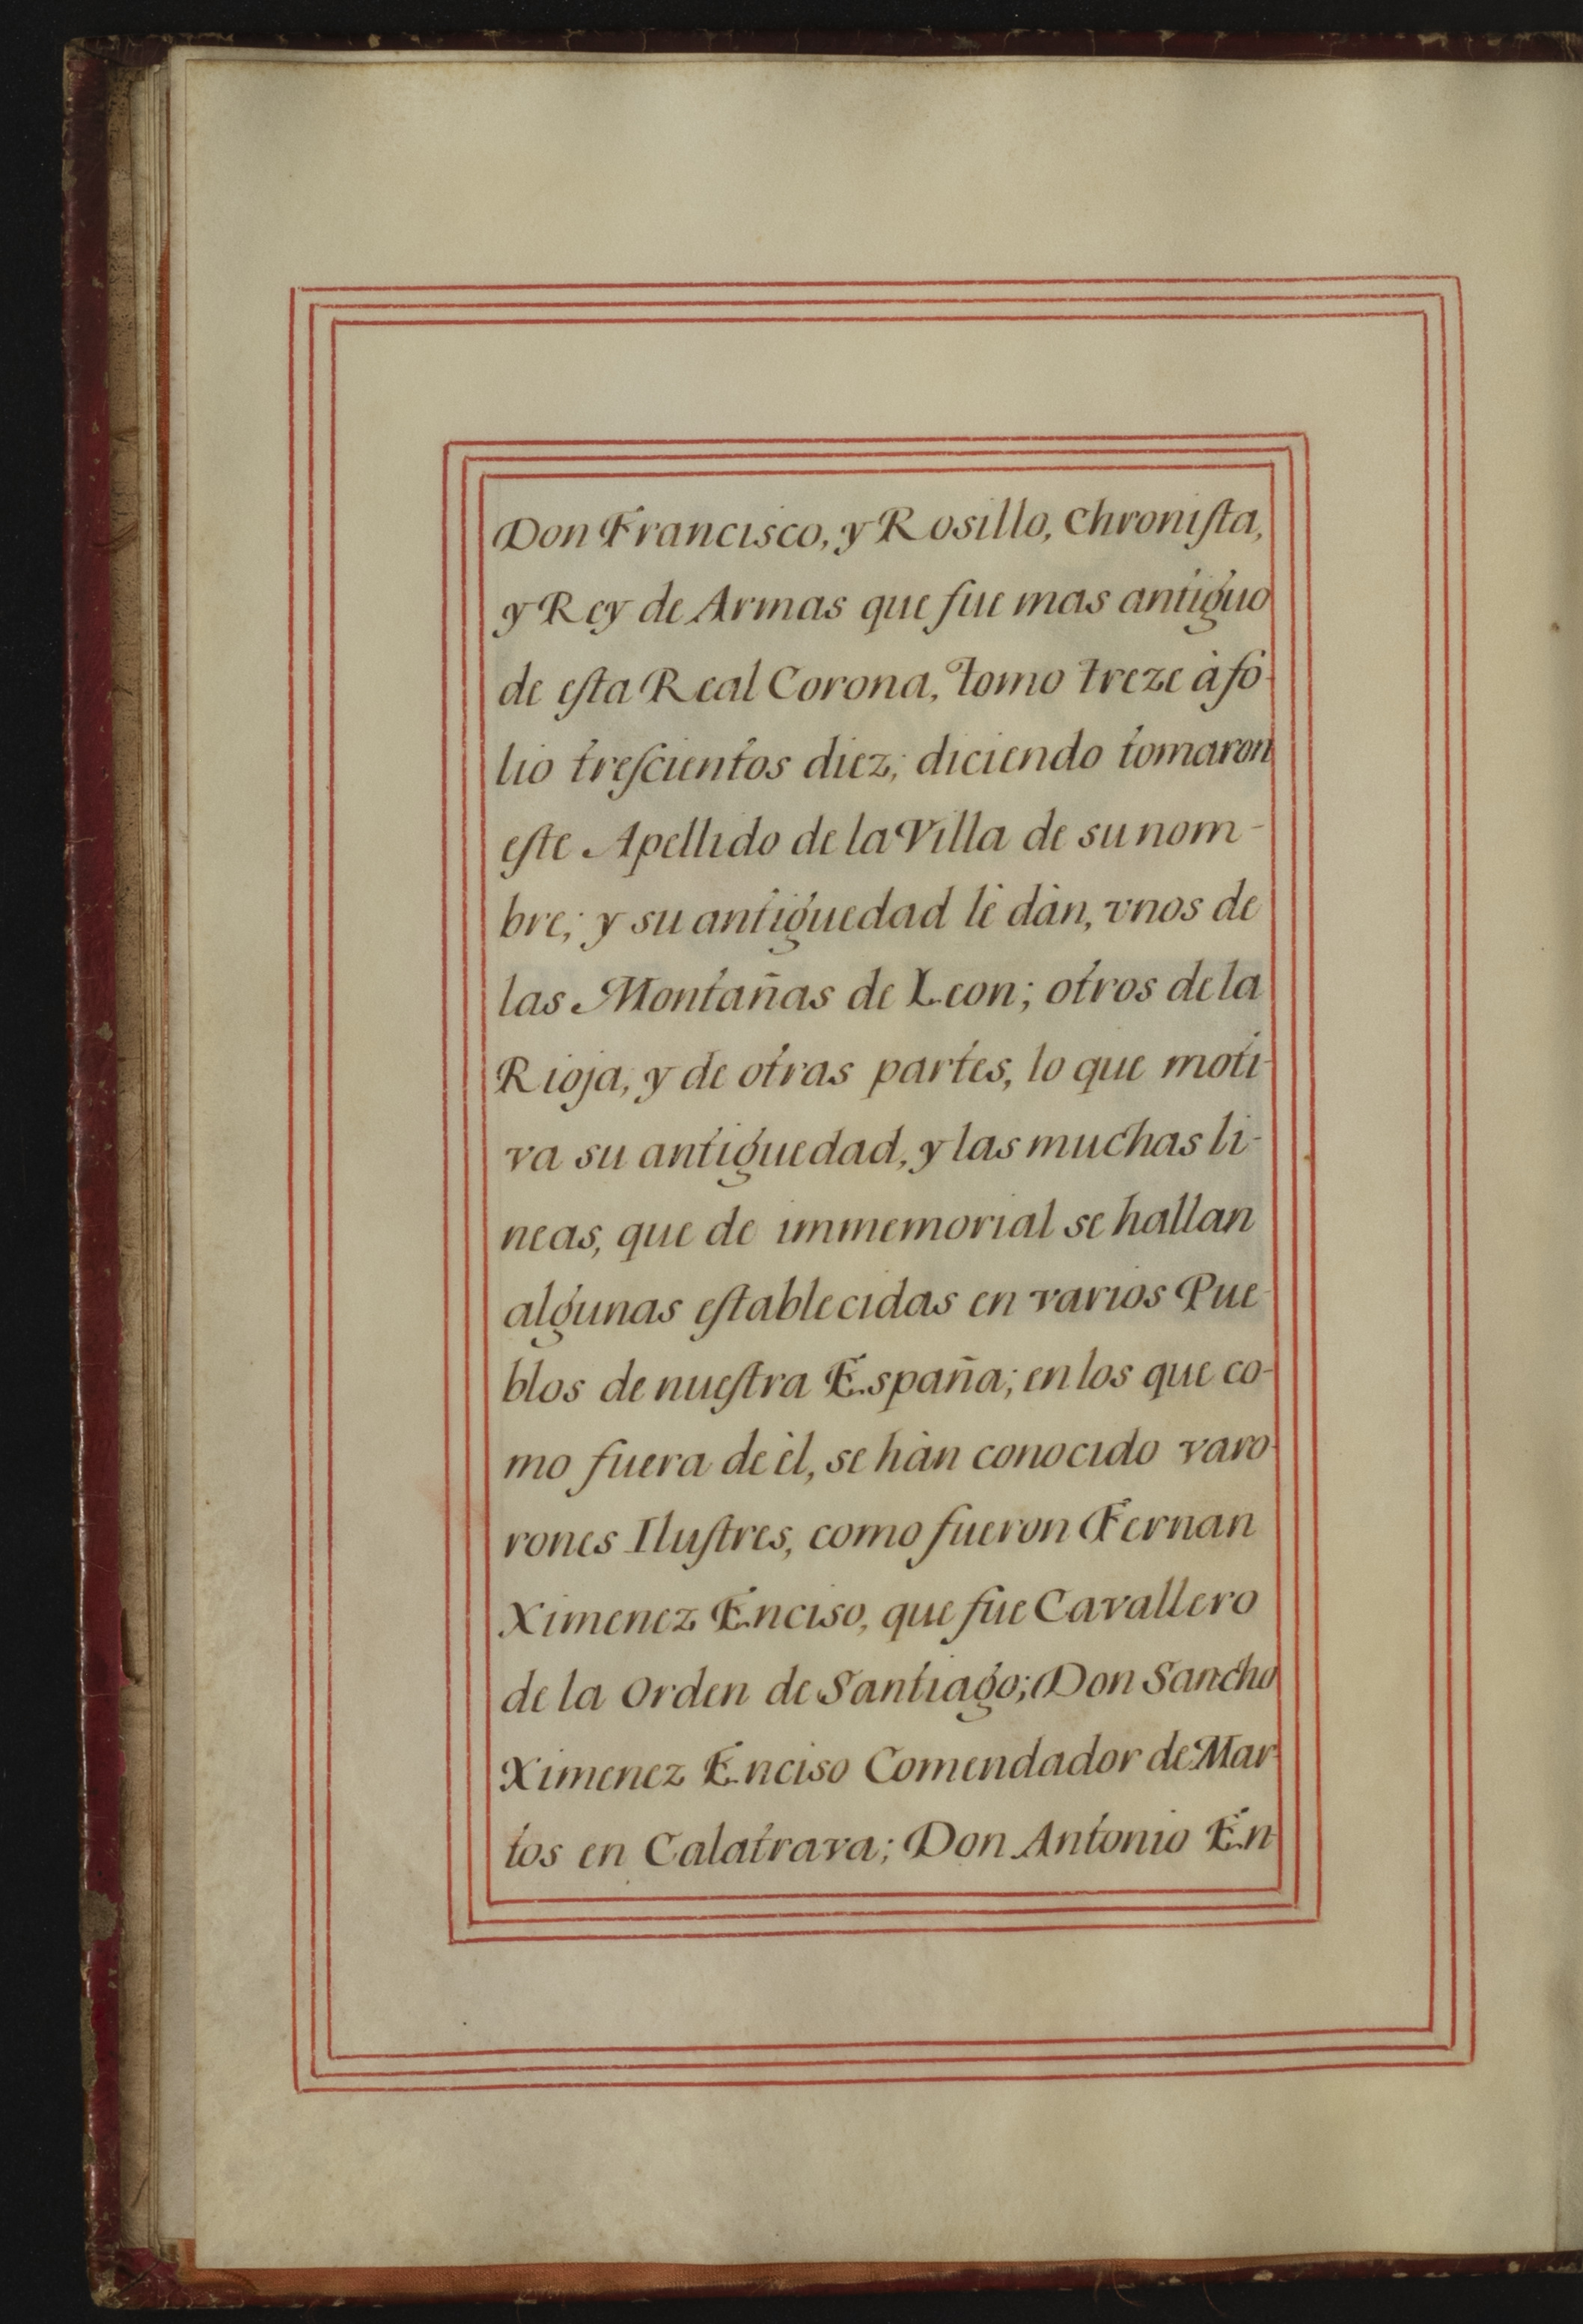 Don Francisco, y Rosillo, Chroniſta,
y Rey de Armas que fue mas antiguo
de eſta Real Corona, tomo treze à fo-
lio treſcientos diez; diciendo tomaron
eſte Apellido de la Villa de su nom-
bre; y su antiguedad lè dàn, vnos de
las Montañas de Leon; otros de la
Rioja, y de otras partes, lo que moti-
va su antiguedad, y las muchas li-
neas, que de immemorial se hallan
algunas eſtablecidas en varios Pue-
blos de nueſtra España; en los que co-
mo fuera de èl, se hàn conocido varo-
rones Iluſtres, como fueron Fernan
Ximenez Enciso, que fue Cavallero
de la Orden de Santiago; Don Sancho
Ximenez Enciso Comendador de Mar-
tos en Calatrava; Don Antonio En-